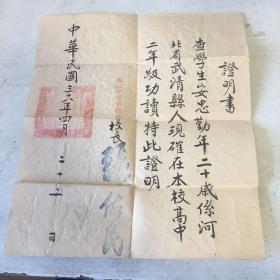 證明書
查學生安忠勤年二十歲係河
北省武清縣人現確在本校高中
二年級功讀特此證明
校長
中華民國三六年四月二十二日